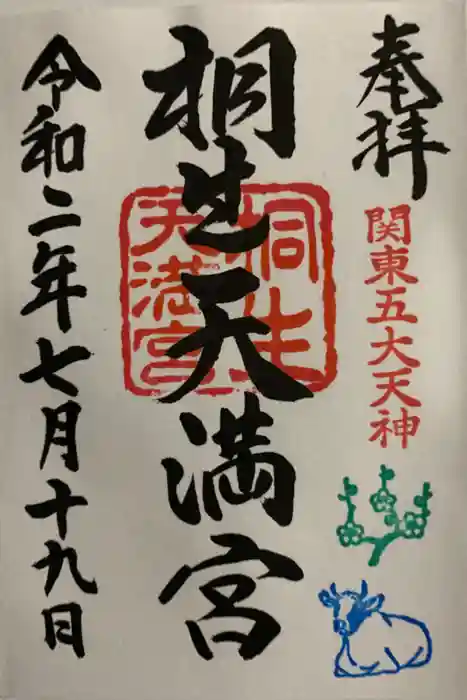 奉拝
関東五大天神
桐生天満宮
桐生
天満宮
令和二年七月十九日